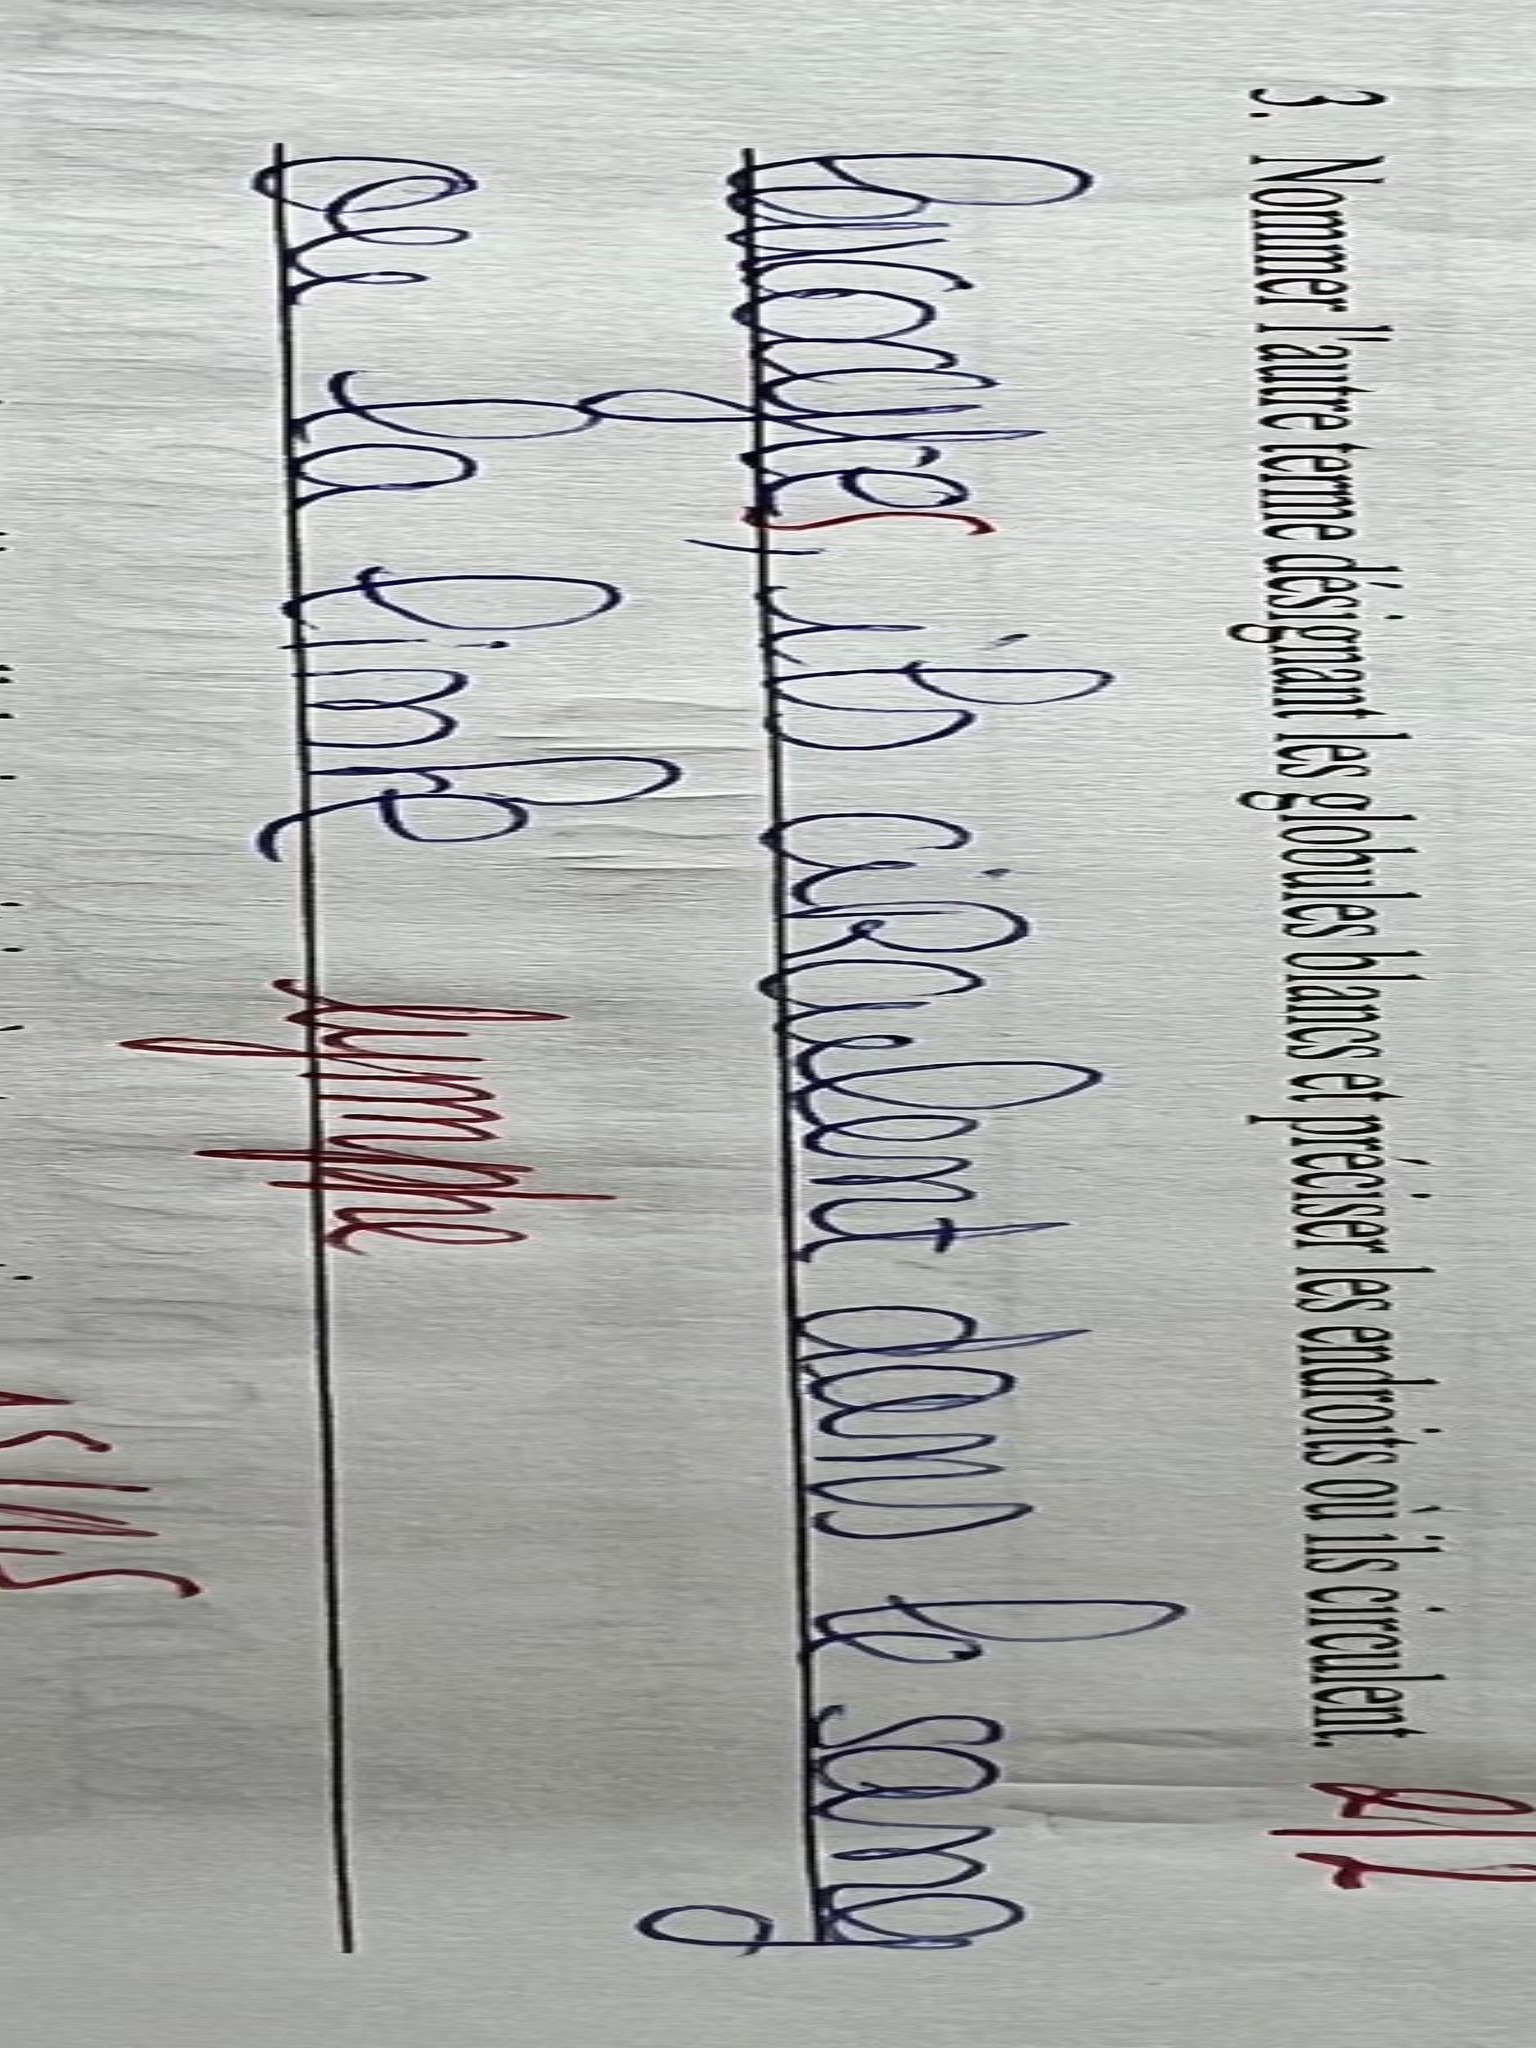 3. Nommer l'autre terme désignant les globules blancs et préciser les endroits où ils circulent. 2/2
Leucocytes, ils circulent dans le sang
ou la limfe lymphe